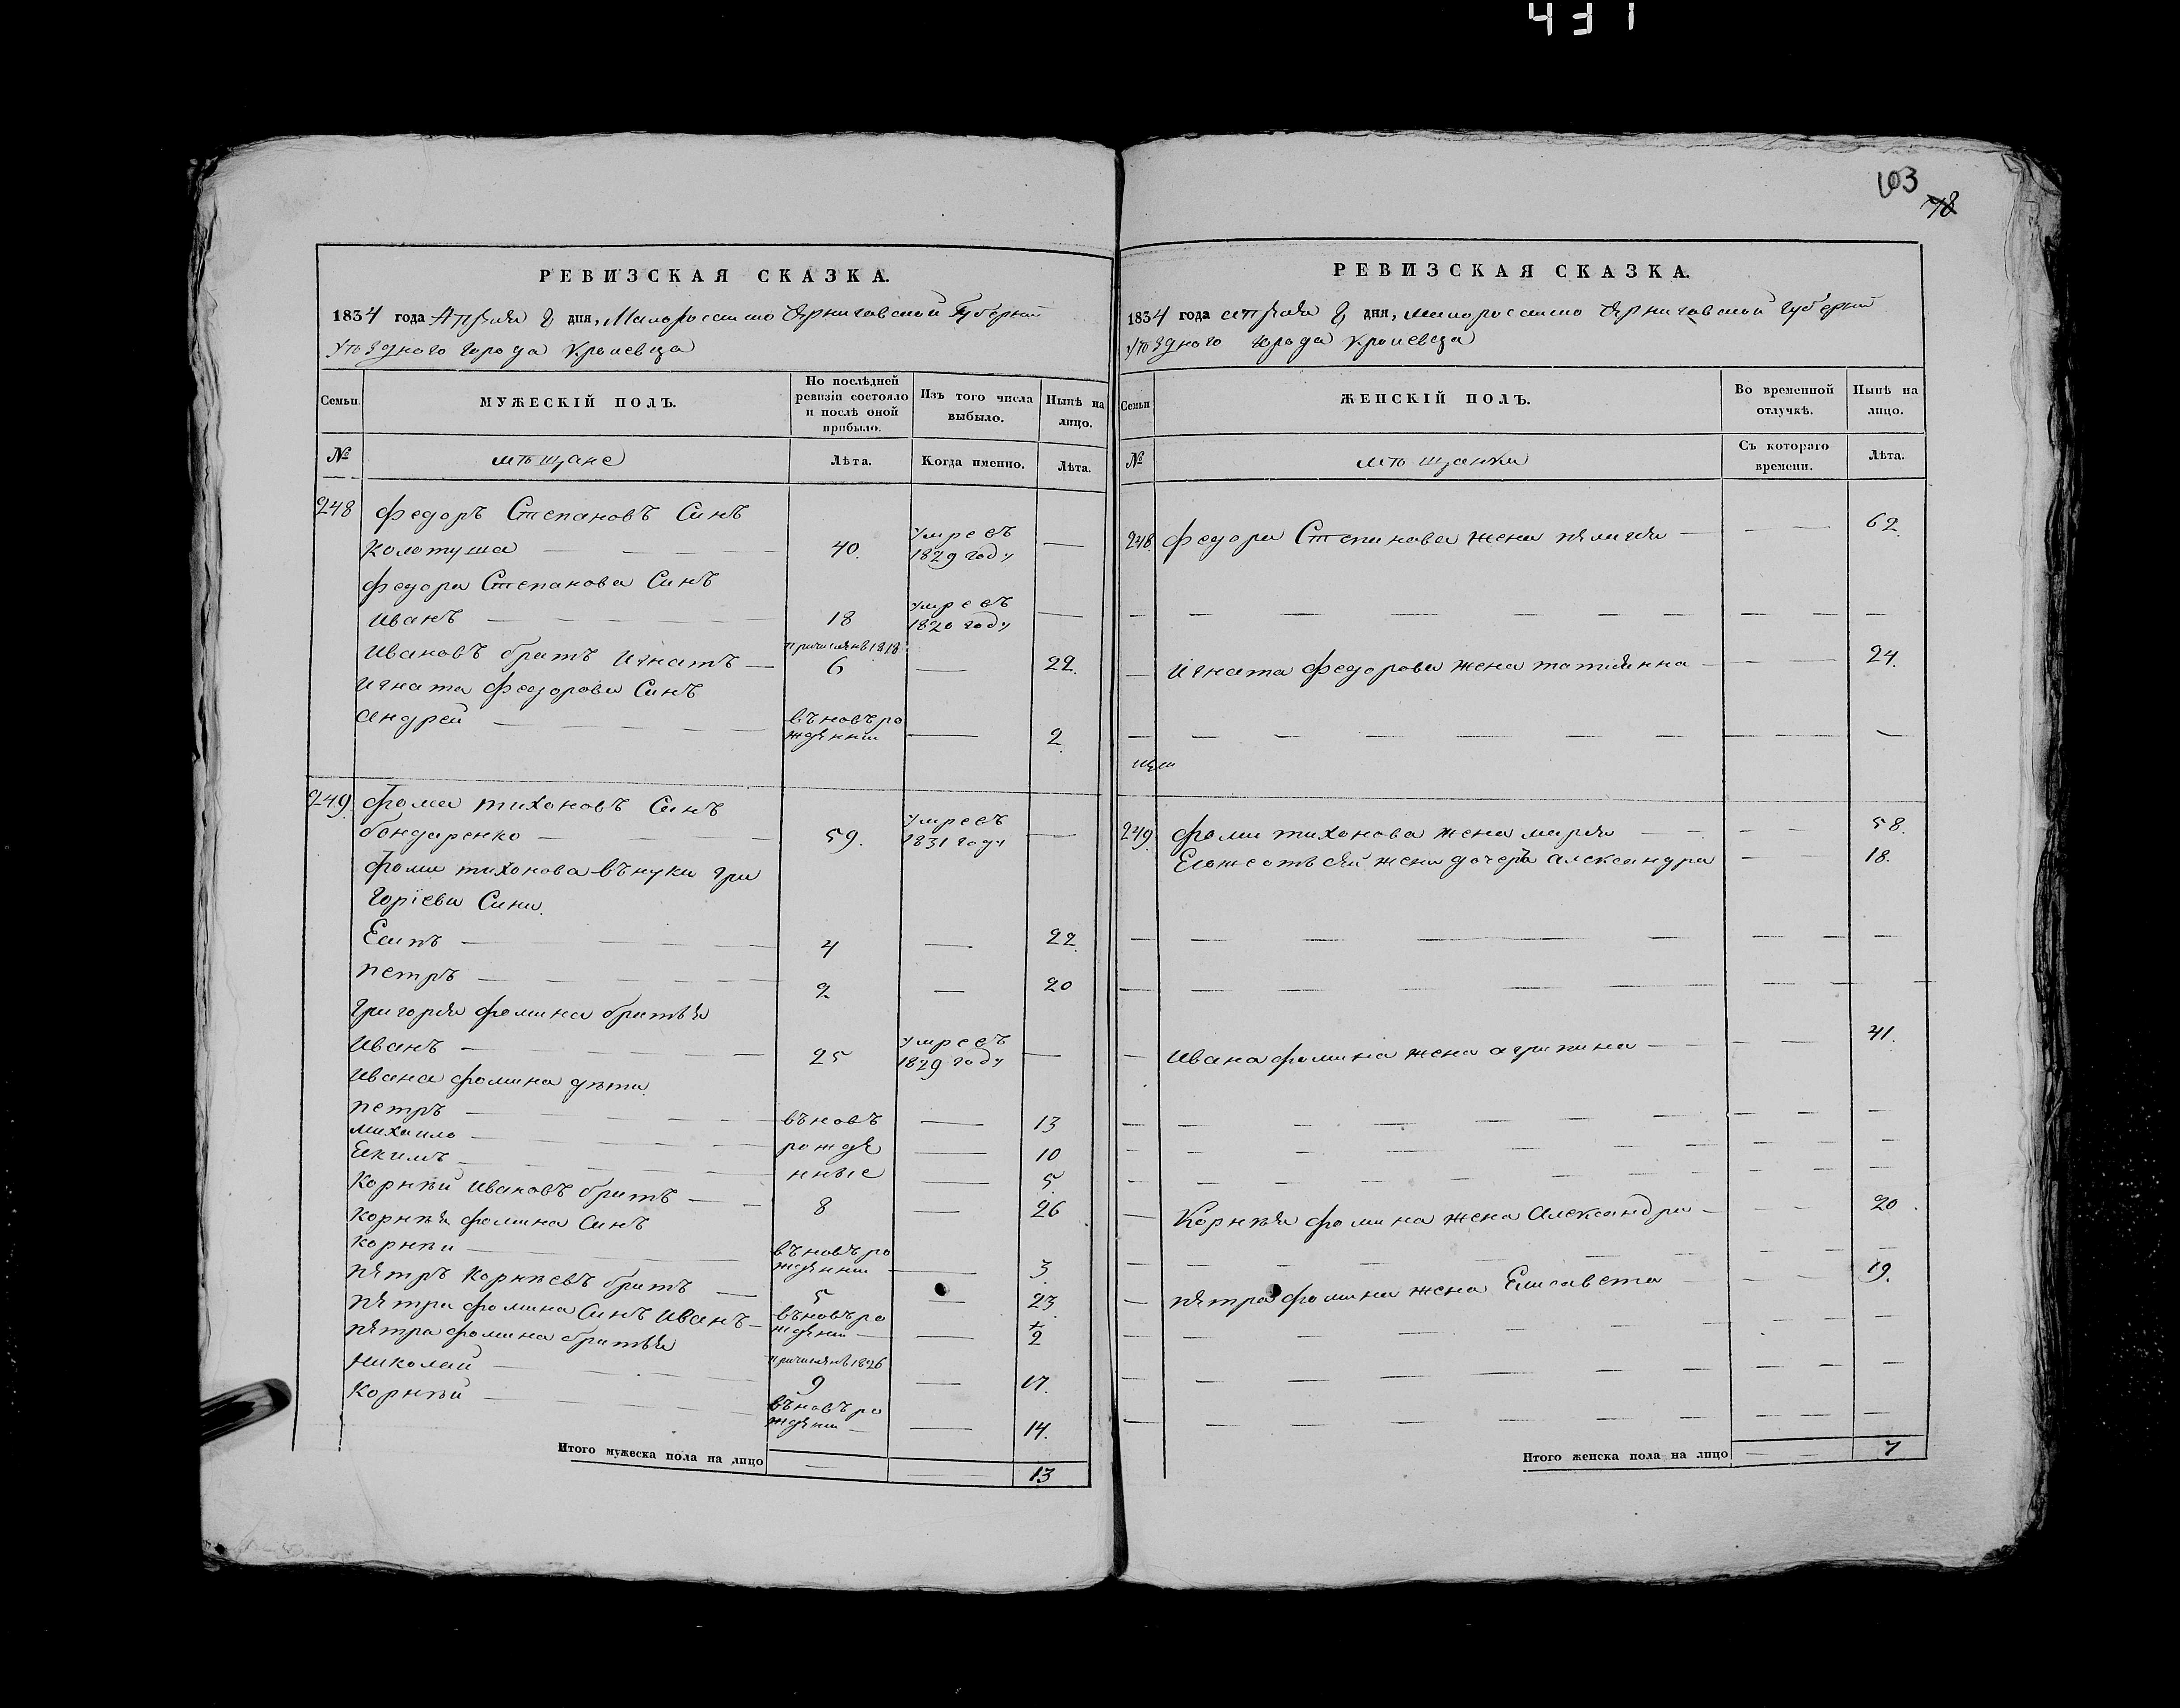 431
103
78
РЕВИЗСКАЯ СКАЗКА.
1834 года Апреля 8 дня, Малороссийско Черниговской Губернии
Уѣздного города Кролевца
Семьи.
МУЖЕСКІЙ ПОЛЪ.
По послѣдней ревизіи состояло и послѣ оной прибыло.
Изъ того числа выбыло.
Нынѣ на лицо.
№
мѣщане
Лѣта.
Когда именно.
Лѣта.
248 Федоръ Степановъ Синъ
Колотуша — 40. умреъ 1829 году —
Федора Степанова Синъ
иванъ — 18 умреъ 1820 году —
Ивановъ братъ игнатъ — причисленъ 1818 6 — 22.
игната Федорова Синъ
андрей — въновъ рожденни — 2.
249. фома тихоновъ Синъ
бондаренко — 59. умреъ 1831 году —
фоми тихонова вънуки гри
горіеви Сини.
Есипъ — 4 — 22.
петръ — 2 — 20
григорія фомина братья
Иванъ — 25 умреъ 1829 году —
ивана фомина дѣти.
петръ — въновъ — 13
михаило — рожде — 10
Екимъ — нные — 5.
Корнѣй ивановъ братъ — 8 — 26
Корнѣя фомина Синъ
корнѣи — въновъ рожденни — 3.
петръ корнѣевъ братъ — 5 — 23.
петра фомина Синъ иванъ — въновъ рождени — 2
петра фомина братья
николай — причисленъ 1826 9 — 17.
корнѣй — въновъ рождени — 14.
Итого мужеска пола на лицо — — 13
РЕВИЗСКАЯ СКАЗКА.
1834 года апреля 8 дня, малороссийско Черниговской губернии
уѣздного города Кролевца
Семьи
ЖЕНСКІЙ ПОЛЪ.
Во временной отлучкѣ.
Нынѣ на лицо.
№
мѣщанки
Съ котораго времени.
Лѣта.
248. Федора Степанова жена пелагея — — 62.
— игната федорова жена татіянна — — 24.
249. фоми тихонова жена марія — — 58.
жена дочеръ александра — — 18.
— ивана фомина жена агрипина — — 41.
— Корнѣя фомина жена александра — — 20.
— петра фомина жена Елисавета — — 19.
Итого женска пола на лицо — — 7